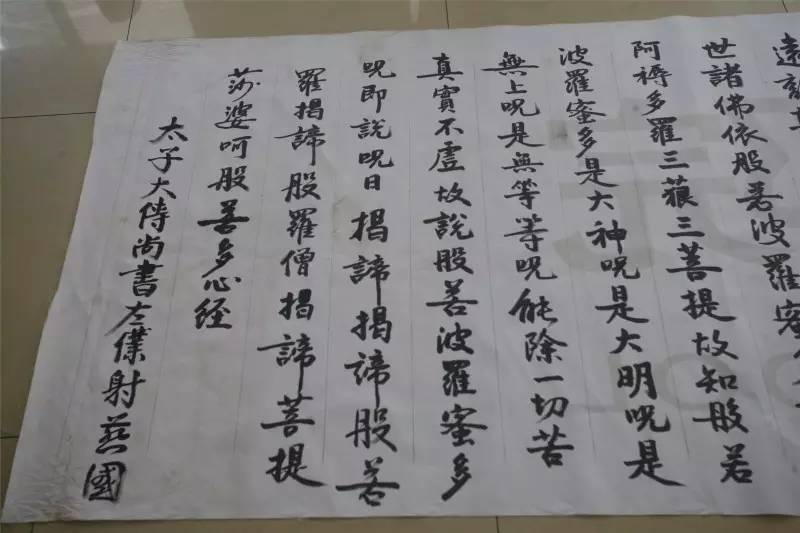 遠
世諸佛依般若波羅蜜
阿耨多羅三藐三菩提故知般若
波羅蜜多是大神呪是大明呪是
無上呪是無等等呪能除一切苦
真實不虛故說般若波羅蜜多
呪即說呪曰揭諦揭諦般若
羅揭諦般羅僧揭諦菩提
莎婆呵般若多心経
太子大傅尚書左僕射燕國